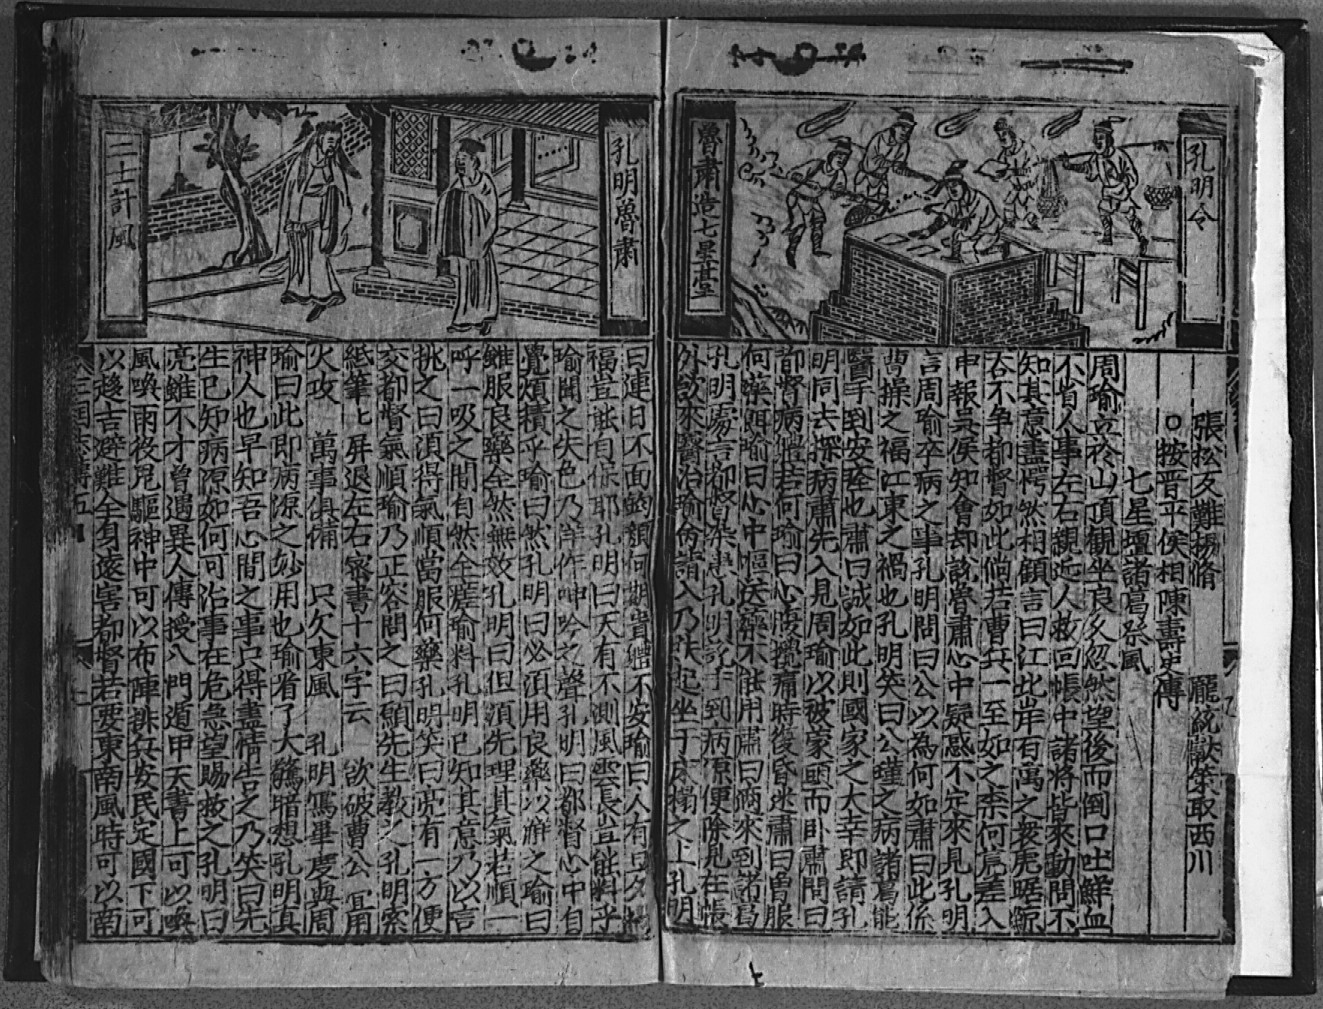 孔明令
魯肅造七星臺
張松反難楊脩　龐統獻策取西川
○按晋平侯相陳壽史傳
七星壇諸葛祭風
周瑜立於山頂観坐良久忽然望後而倒口吐鮮血
不省人事左右親近人救回帳中諸將皆來動問不
知其意盡愕然相顧言曰江北岸有萬之衆虎踞鯨
吞不争都督如此倘若曹兵一至如之柰何差入
申報吳侯知會却說魯肅心中疑惑不定來見孔明
言周瑜卒病之事孔明問曰公以為何如肅曰此係
曹操之福江東之禍也孔明笑曰公瑾之病諸葛能
醫手到安痊也肅曰誠如此則國家之大幸即請孔
明同去探病肅先入見周瑜以被蒙頭而卧肅問曰
都督病體若何瑜曰心腹攪痛時復昏迷肅曰曾服
何藥餌瑜曰心中嘔送藥不能用肅曰適來到諸葛
孔明處言都督染患孔明託手到病源便除見在帳
外欲來醫治瑜命請入乃扶起坐于床榻之上孔明
孔明魯肅
二士計風
曰連日不面的顏何期貴體不安瑜曰人有旦夕禍
福豈能自保耶孔明曰天有不測風雲長豈能料乎
瑜聞之失色乃詳作呻吟之聲孔明曰都督心中自
覺煩積乎瑜曰然孔明曰必須用良藥以解之瑜曰
雖服良藥全然無效孔明曰但須先理其氣若順一
呼一吸之間自然全瘥瑜料孔明已知其意乃以言
挑之曰須得氣順當服何藥孔明笑曰亮有一方便
交都督氣順瑜乃正容問之曰願先生教之孔明索
紙筆上屏退左右密書十六字云　欲破曹公　冝用
火攻　萬事俱備　只欠東風　孔明寫畢度與周
瑜曰此即病源之妙用也瑜看了大驚暗想孔明真
神人也早知吾心間之事只得盡情告之乃笑曰先
生已知病源如何可治事在危急望賜救之孔明曰
亮雖不才曾遇異人傳授八門遁甲天書上可以喚
風喚雨役鬼驅神中可以布陣排兵安民定國下可
以趍吉避難全身遠害都督若要東南風時可以南
三国志傳五